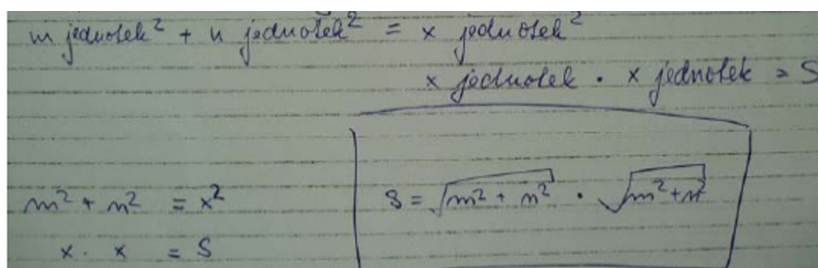 m jednotek² + n jednotek² = x jednotek²
x jednotek · x jednotek = S
m² + n² = x²
x · x = S
S = √(m² + n²) · √(m² + n²)